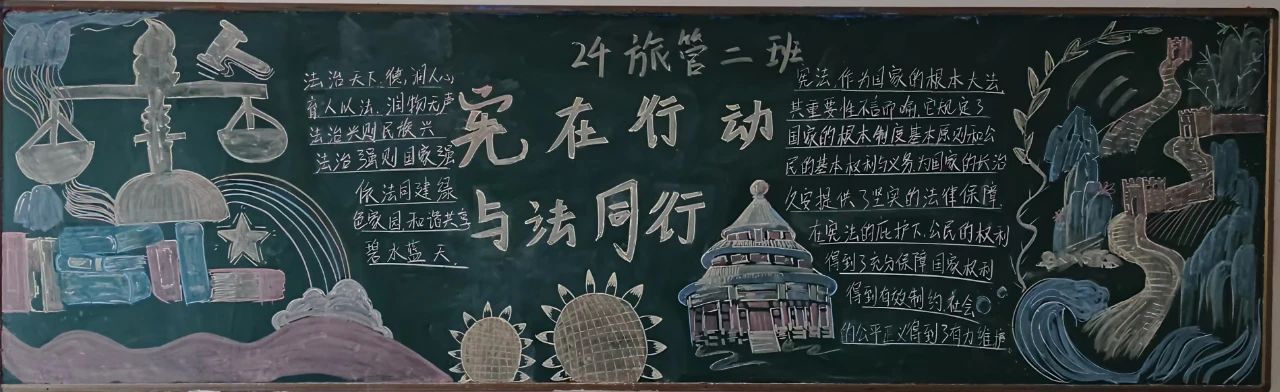 24旅管二班
宪在行动
与法同行
法治天下,德润人心
育人以法,润物无声
法治兴则民族兴
法治强则国家强
依法同建绿
色家园和谐共享
碧水蓝天.
宪法,作为国家的根本大法,
其重要性不言而喻,它规定了
国家的根本制度基本原则和公
民的基本权利与义务,为国家的长治
久安提供了坚实的法律保障.
在宪法的庇护下,公民的权利
得到了充分保障国家权利
得到有效制约,社会
的公平正义得到了有力维护